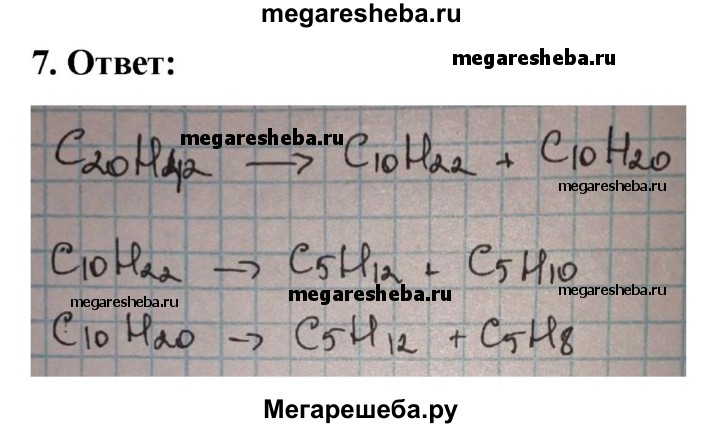 megaresheba.ru
7. Ответ:
megaresheba.ru
megaresheba.ru
C20H42 → C10H22 + C10H20
megaresheba.ru
C10H22 → C5H12 + C5H10
megaresheba.ru
megaresheba.ru
megaresheba.ru
C10H20 → C5H12 + C5H8
Мегарешеба.ру